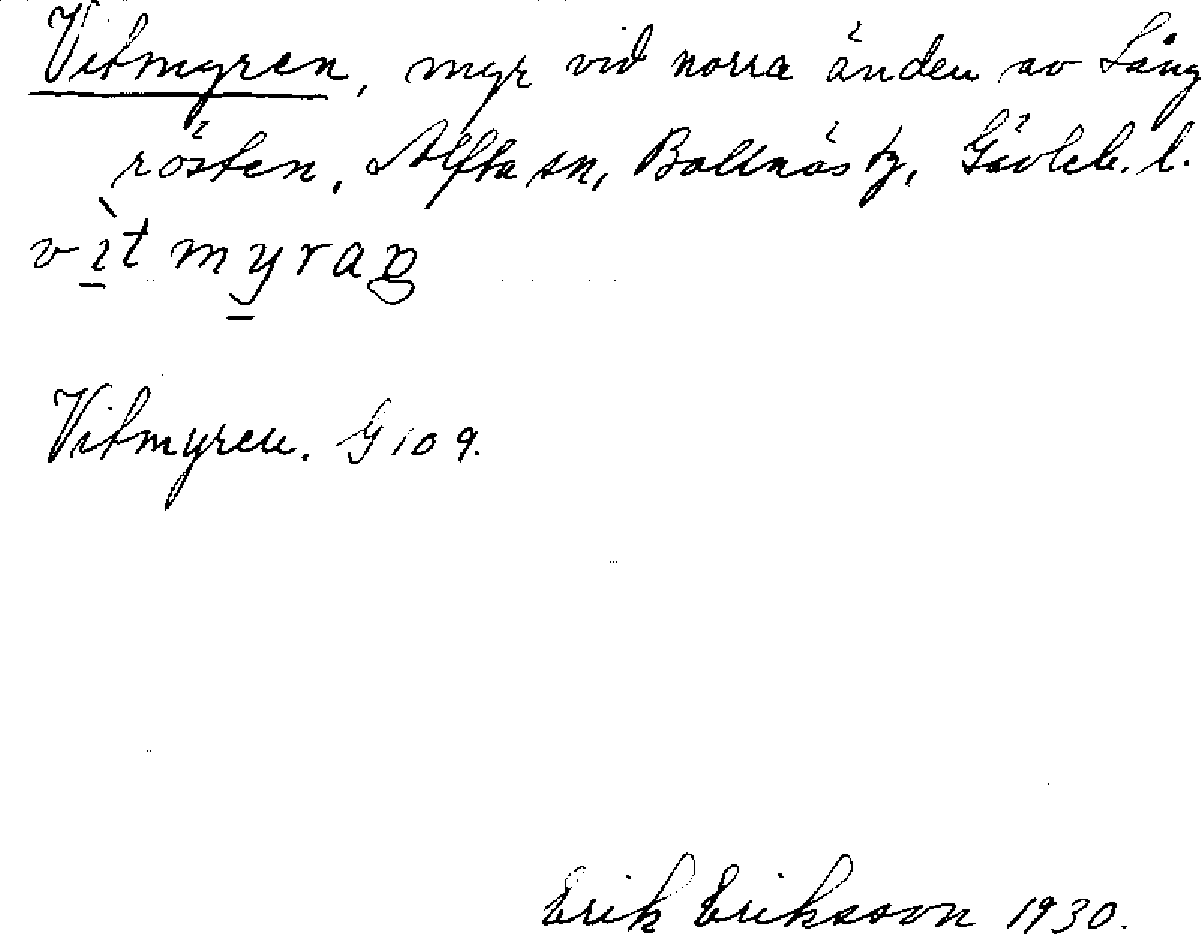 Vitmyren, myr vid norra änden av Lång
rösten, Alfta sn, Bollnäs tg, Gävleb. l.
vìt myraɲ
Vitmyren. G 109.
Erik Eriksson 1930.